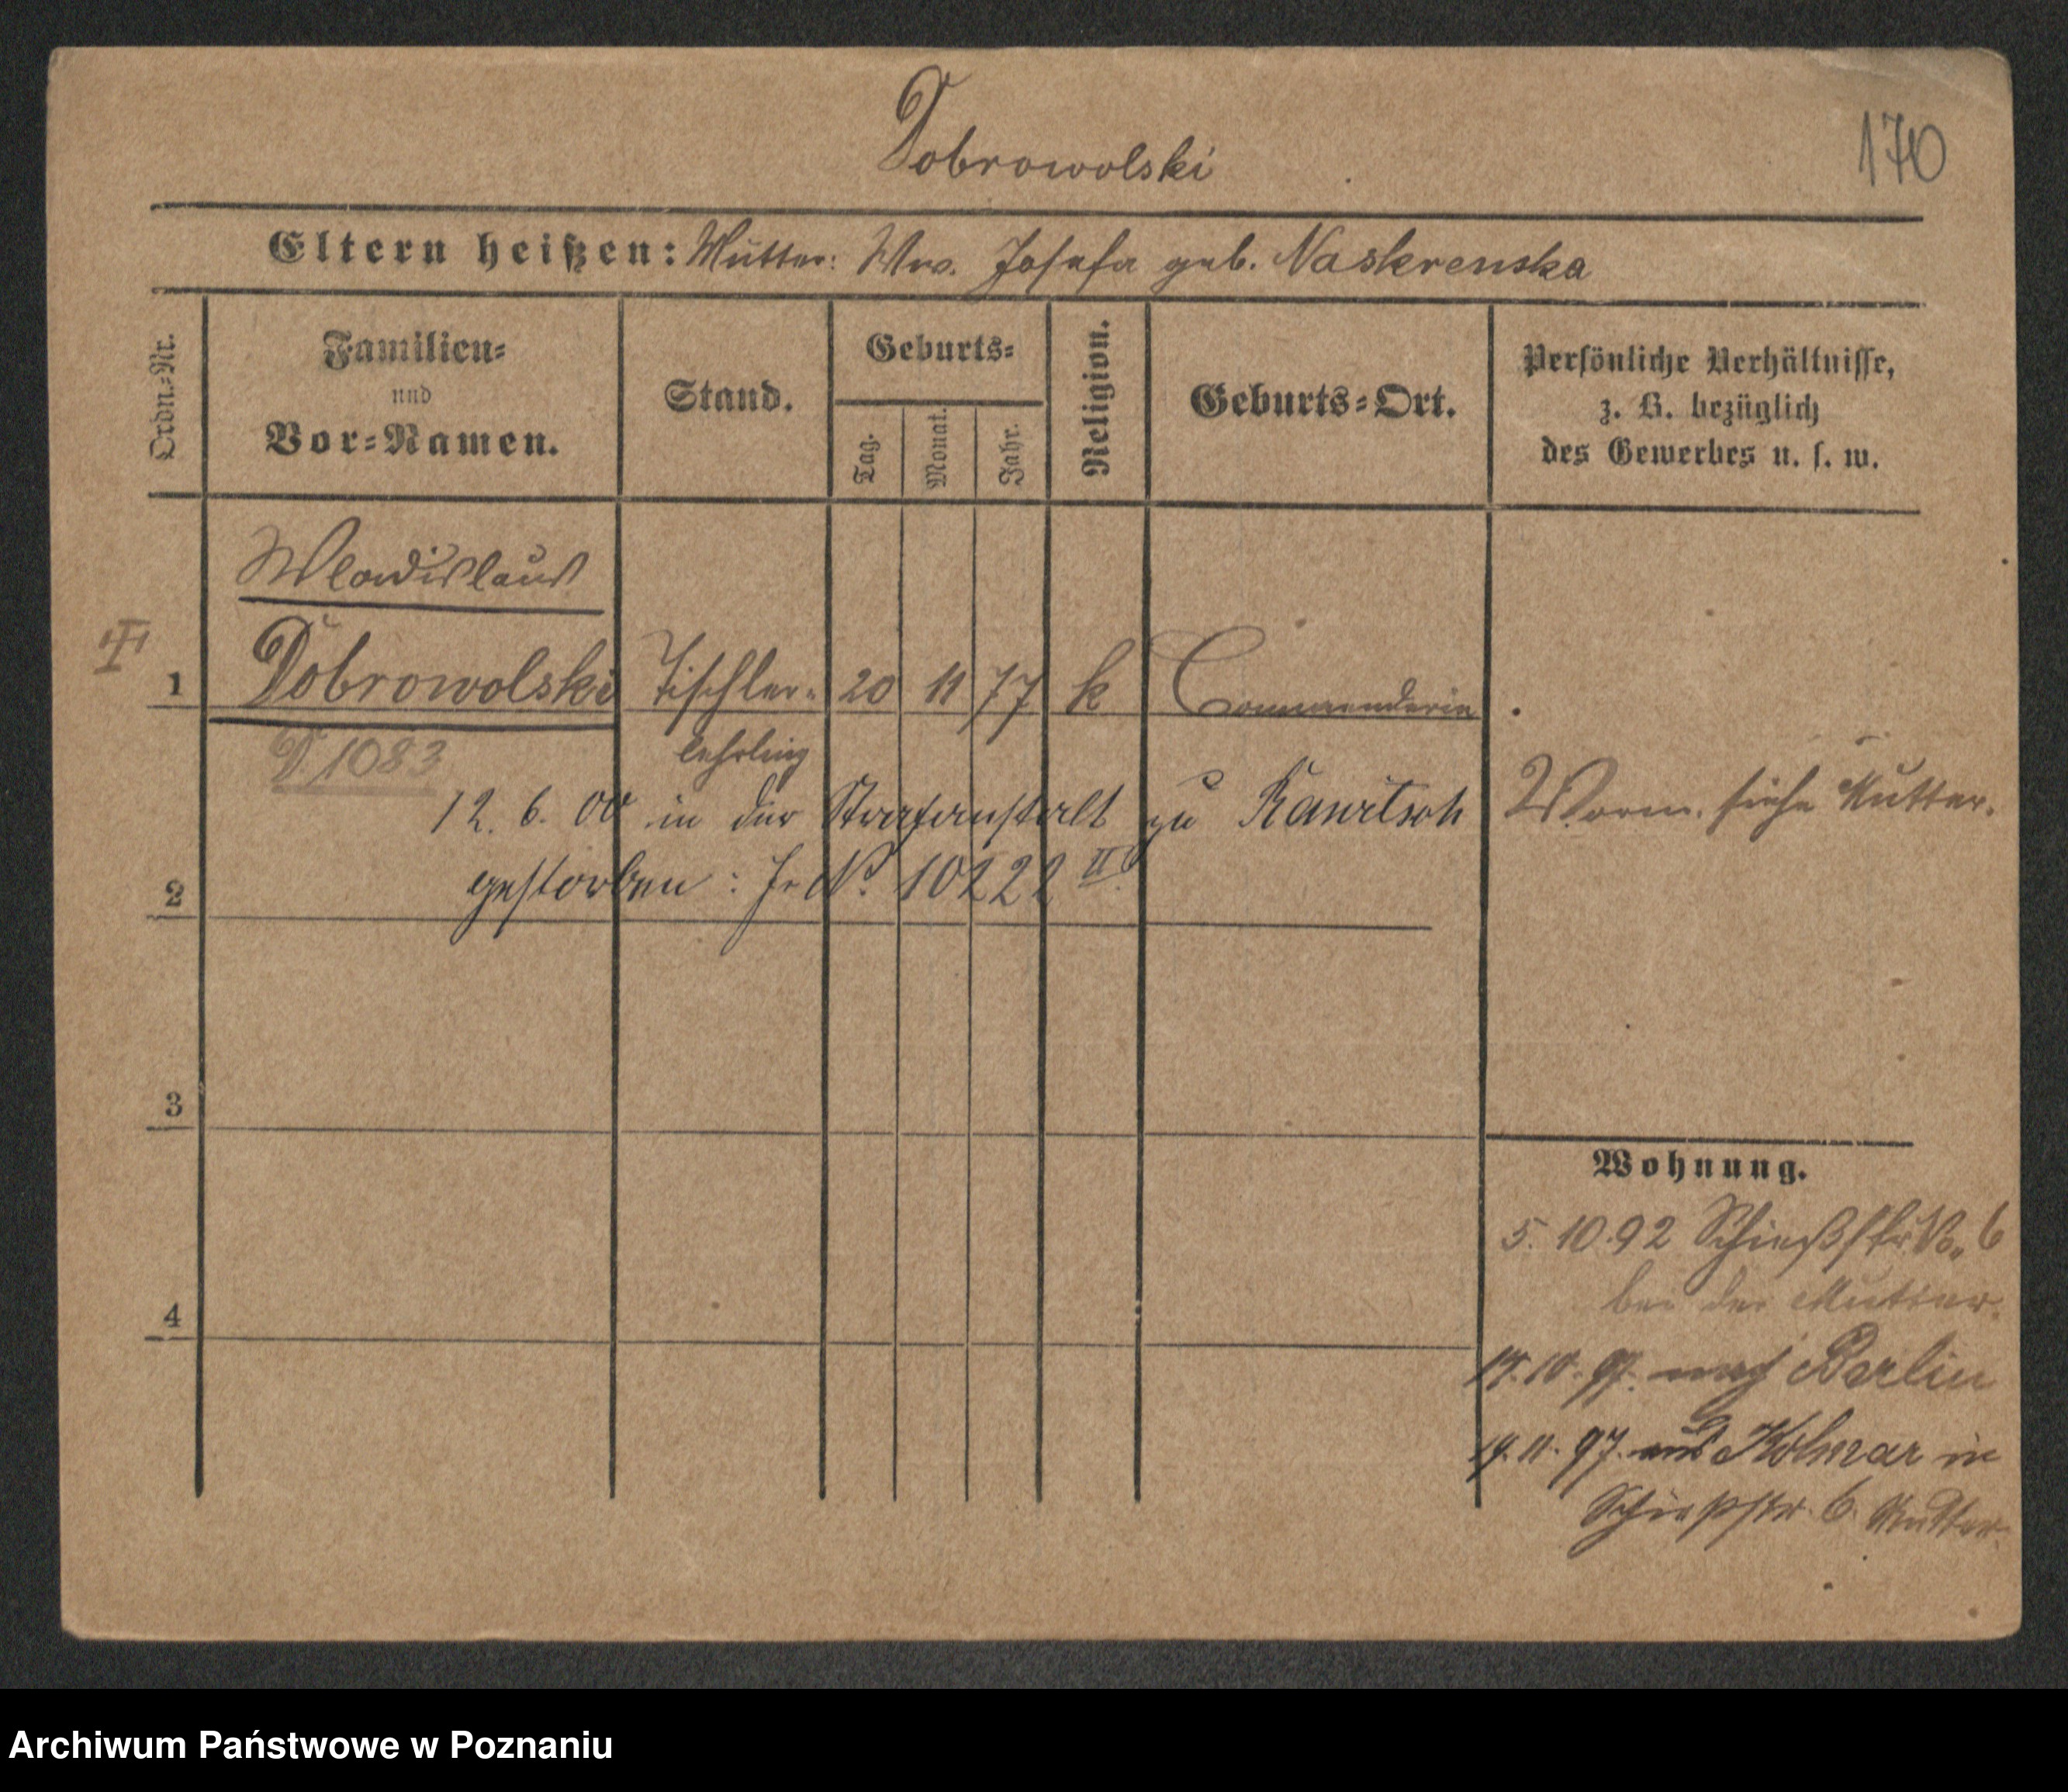 Dobrowolski
170
Eltern heißen: Mutter: Ww. Josefa geb. Naskrenska
Ordn.-Nr.
Familien-
und
Vor-Namen.
Stand.
Geburts-
Tag.
Monat.
Jahr.
Religion.
Geburts-Ort.
Persönliche Verhältnisse,
z. B. bezüglich
des Gewerbes u. s. w.
Wladislaus
1 Dobrowolski Tischler- 20 11 77 k Commenderie
D 1083 lehrling
12. 6. 00 in der Strafanstalt zu Rawitsch
Vorm. siehe Mutter.
gestorben : J. No. 10222 II.
2
3
Wohnung.
5. 10. 92 Schießstr No. 6
bei der Mutter.
4
10. 97. nach Berlin
19. 11. 97. aus Kolmar in
Schießstr. 6. Mutter.
Archiwum Państwowe w Poznaniu